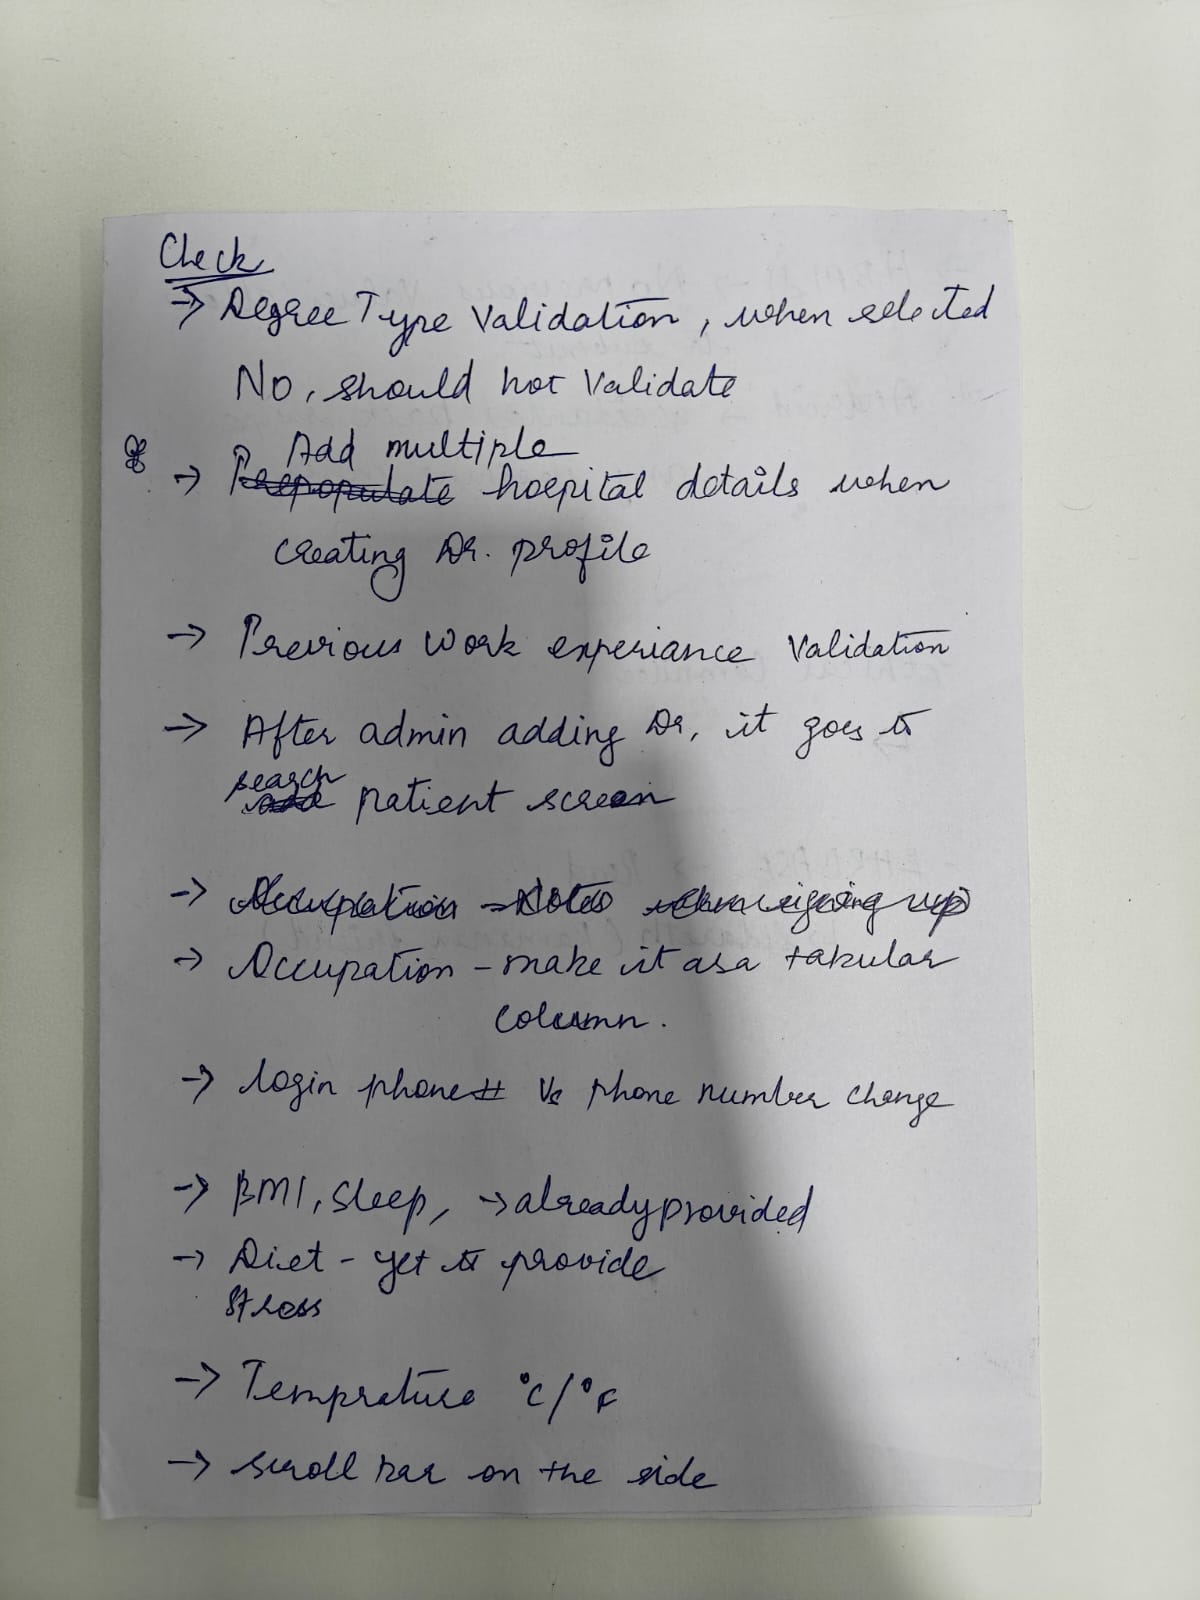 Check
→ Degree Type Validation, when selected
No, should not Validate
Add multiple
→ Prepopulate hospital details when
creating Dr. profile
→ Previous Work experiance Validation
→ After admin adding Dr, it goes to
search
add patient screen
→ Occupation - Notes when signing up
→ Occupation - make it as a tabular
column.
→ login phone # Vs phone number change
→ BMI, Sleep, → already provided
→ Diet - yet to provide
Stress
→ Temprature °C/°F
→ scroll bar on the side